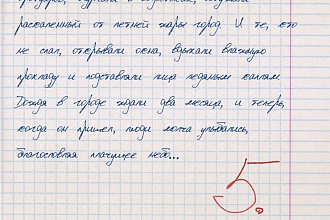 раскаленный от летней жары город. И те, кто
не спал, открывали окна, вдыхали влажную
прохладу и подставляли лица ледяным каплям.
Дождя в городе ждали два месяца, и теперь,
когда он пришел, люди молча улыбались,
благословляя плачущее небо...
5.